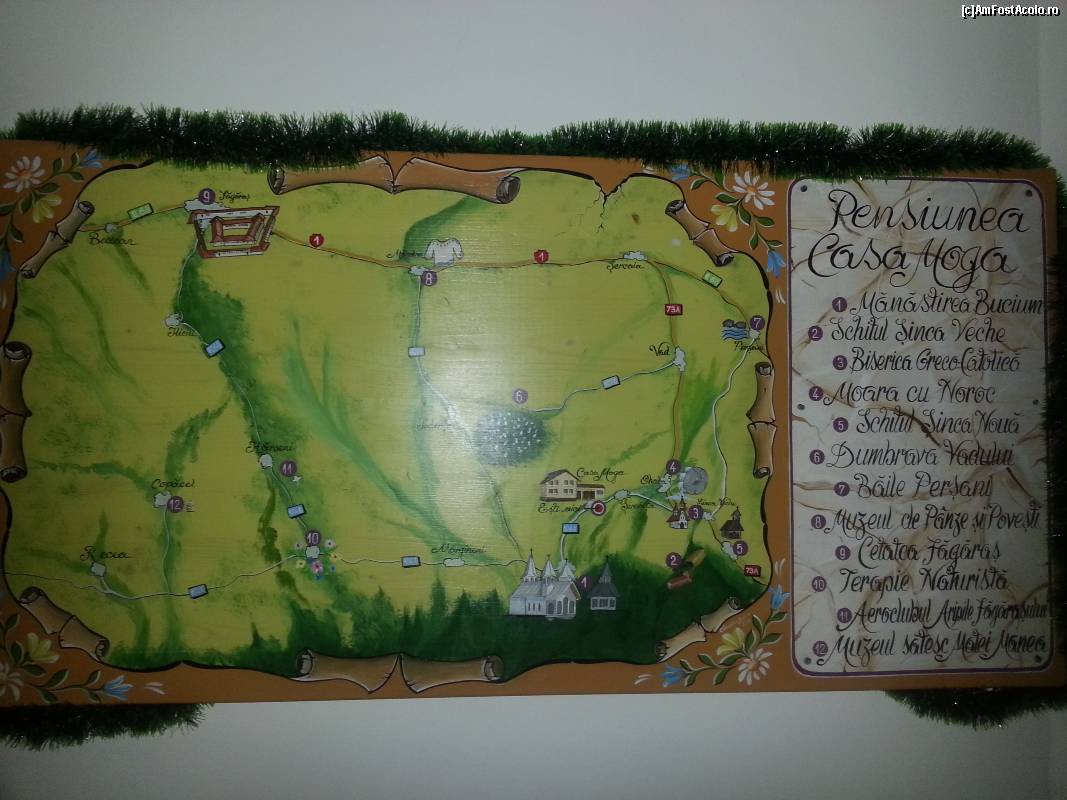 [c]AmFostAcolo.ro
Pensiunea
Casa Moga
1 Mănăstirea Bucium
2 Schitul Șinca Veche
3 Biserica Greco Catolică
4 Moara cu Noroc
5 Schitul Șinca Nouă
6 Dumbrava Vadului
7 Băile Perșani
8 Muzeul de Pânze și Povești
9 Cetatea Făgăraș
10 Terapie Naturistă
11 Aeroclubul Aripile Făgărașului
12 Muzeul sătesc Matei Manea
9 Făgăraș
Beclean
1
1
8
Șercaia
73A
7
Vad
6
Hârseni
11
Copăcel
12
10
Recea
Mărgineni
Casa Moga
Ești aici
4
3
5
2
1
73A